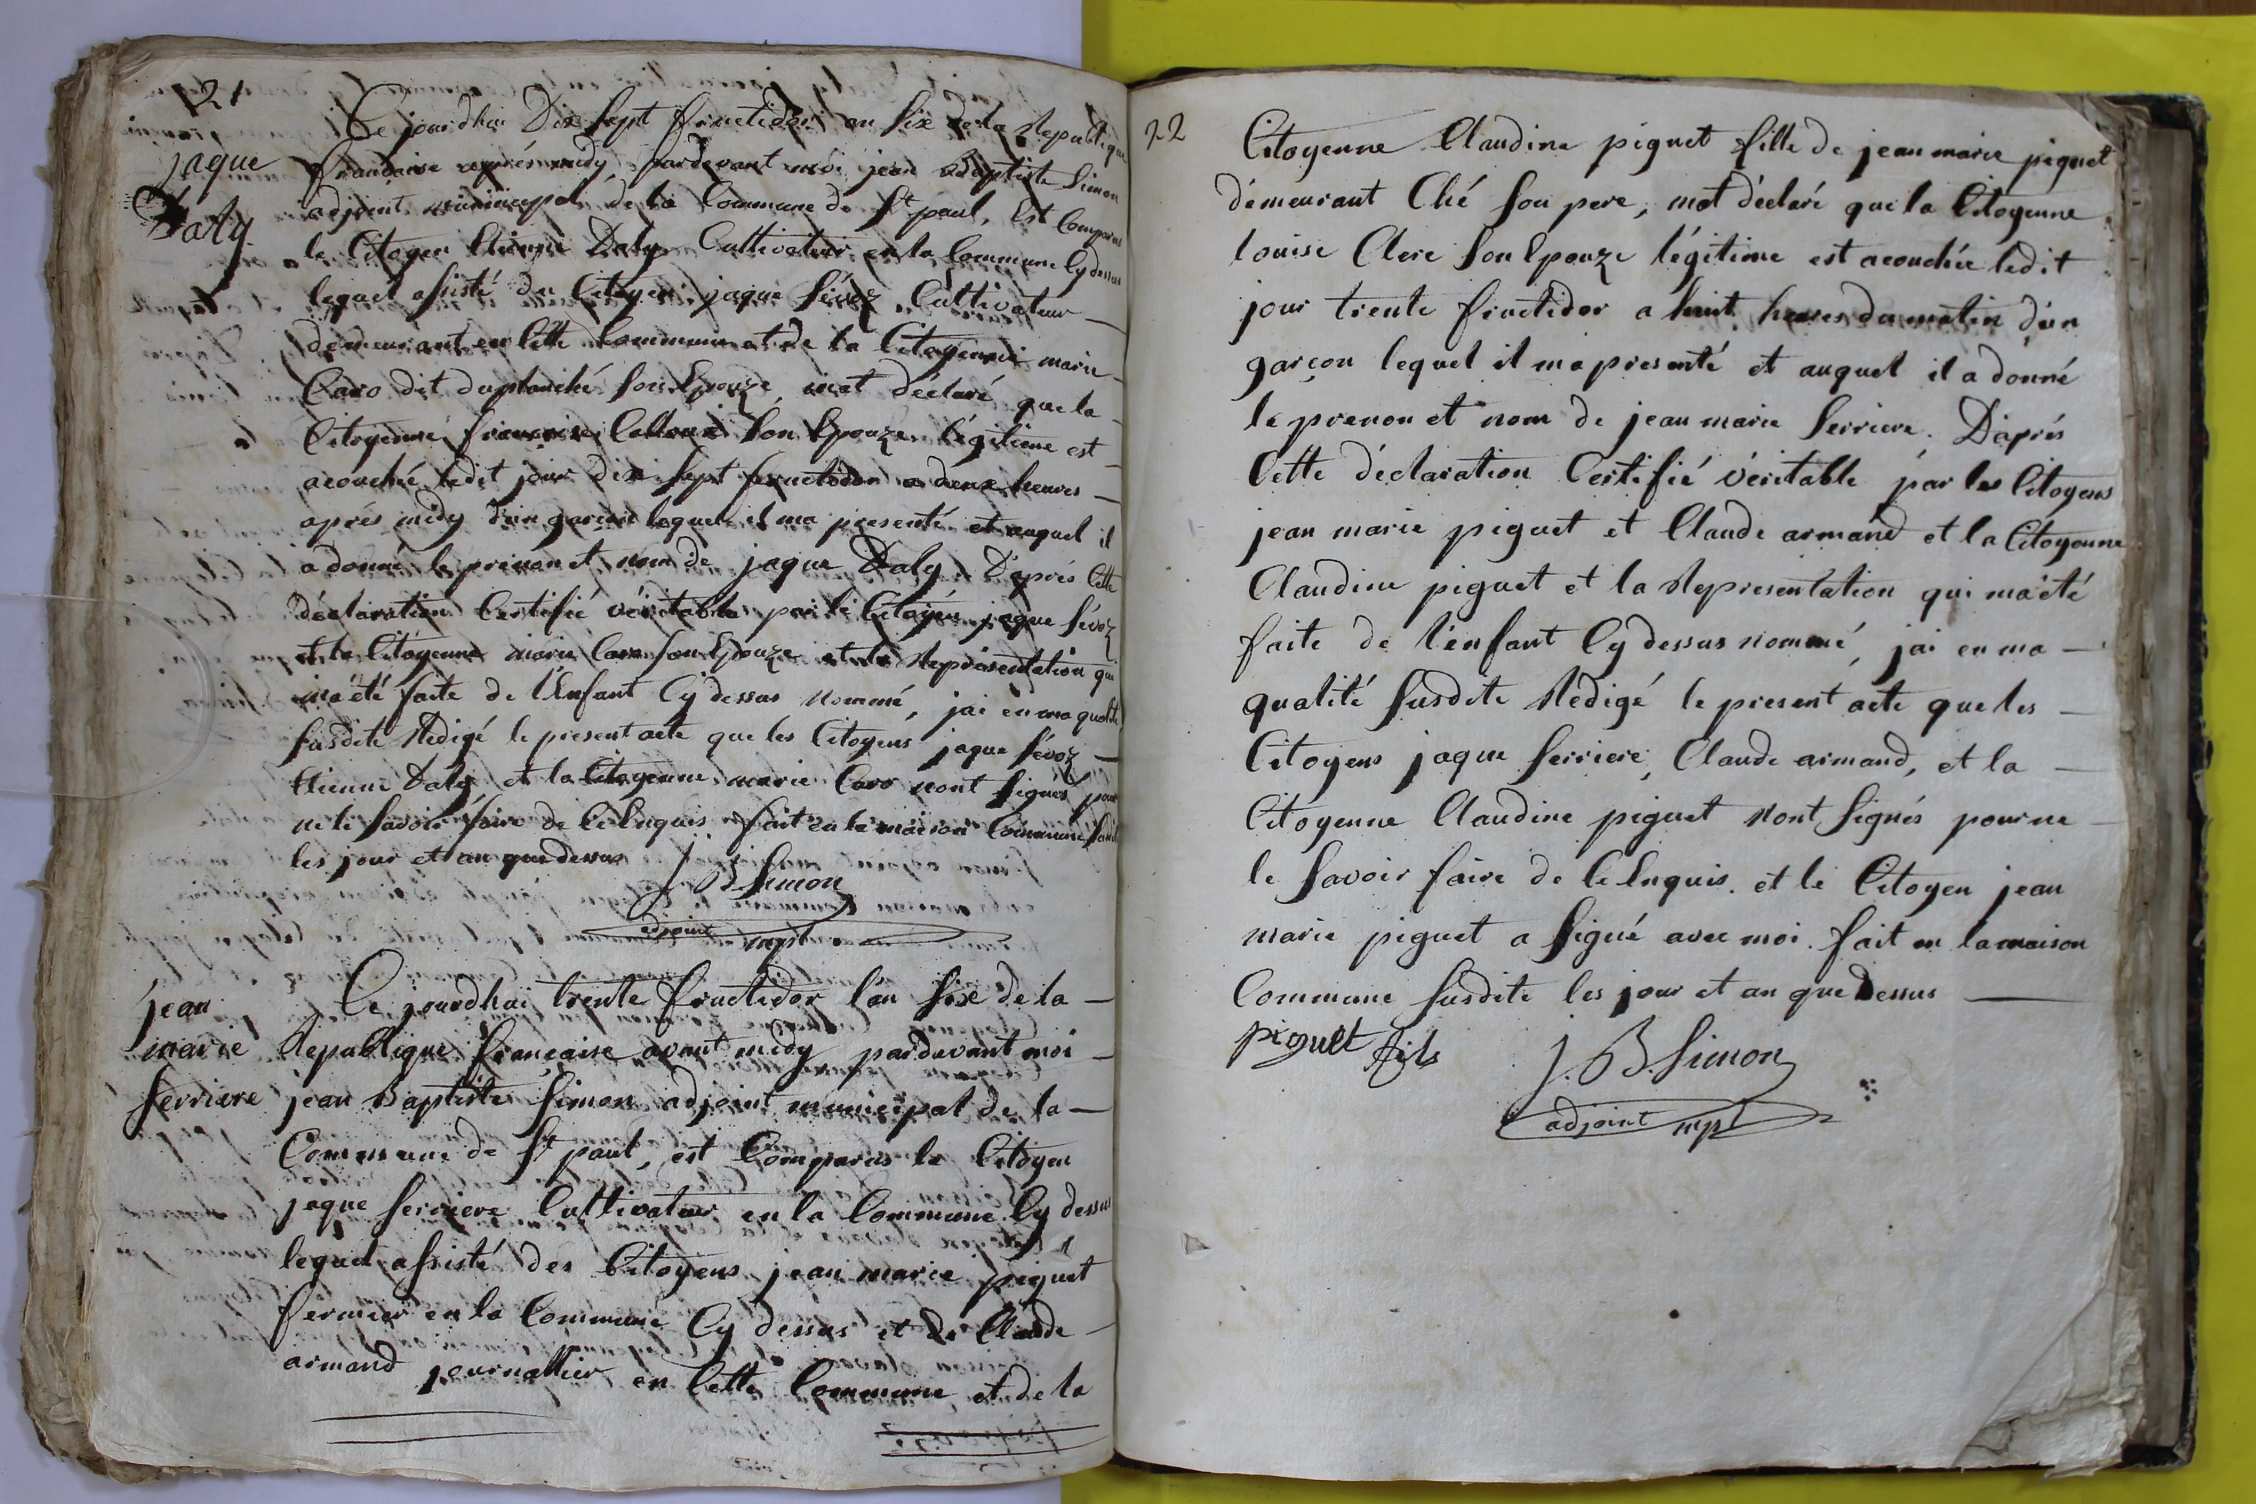 21
jaque
Daly
Ce jourdhui Dix sept fructidor an six de la Republique
francaise après midy, pardevant moi jean Baptiste Simon
adjoint municipal de la Commune de St paul, Est Comparus
le Citoyen Etienne Daly Cultivateur en la Commune Cy dessus
lequel assisté du Citoyen jaque Sévoz Cultivateur
demeurant en Cette Commune et de la Citoyenne marie
Caro dit duplanché son Epouze, mat déclaré que la
Citoyenne francoise son Epouze légitime est
acouchée ledit jour dix sept fructidor a deux heures
après midy d'un garcon lequel il ma presenté et auquel il
a donné le prenon et nom de jaque Daly. D'après Cette
déclaration Certifié véritable par le Citoyen jaque Sévoz
et la Citoyenne marie Caro son Epouze et la Représentation qui
ma été faite de l'Enfant Cy dessus nommé, jai en ma qualité
susdite Rédigé le present acte que les Citoyens jaque Sévoz
Etienne Daly et la Citoyenne marie Caro nont signés pour
ne le savoir faire de Ce Enquis fait en la maison Commune
les jour et an que dessus
J B Simon
adjoint mpl
jean
marie
ferriere
Ce jourdhui trente fructidor l'an six de la
Republique française avant midy pardevant moi
jean Baptiste Simon adjoint municipal de la
Commune de St paul, est Comparus le Citoyen
jaque ferriere Cultivateur en la Commune Cy dessus
lequel assisté des Citoyens jean marie piguet
fermier en la Commune Cy dessus et de Claude
armand journallier en Cette Commune, et de la
22
Citoyenne Claudine piguet fille de jean marie piguet
démeurant Ché son pere, mat déclaré que la Citoyenne
louise Clerc son Epouze légitime est acouchée ledit
jour trente fructidor a huit heures du matin d'un
garçon lequel il ma presenté et auquel il a donné
le prenon et nom de jean marie ferriere. D'aprés
Cette déclaration Certifié véritable par les Citoyens
jean marie piguet et Claude armand et la Citoyenne
Claudine piguet et la Representation qui ma été
faite de l'enfant Cy dessus nommé, jai en ma
qualité susdite Rédigé le present acte que les
Citoyens jaque ferriere, Claude armand, et la
Citoyenne Claudine piguet nont signés pour ne
le savoir faire de Ce Enquis. et le Citoyen jean
marie piguet a signé avec moi. fait en la maison
Commune susdite les jour et an que Dessus
piguet fils
J. B. Simon
adjoint mpl